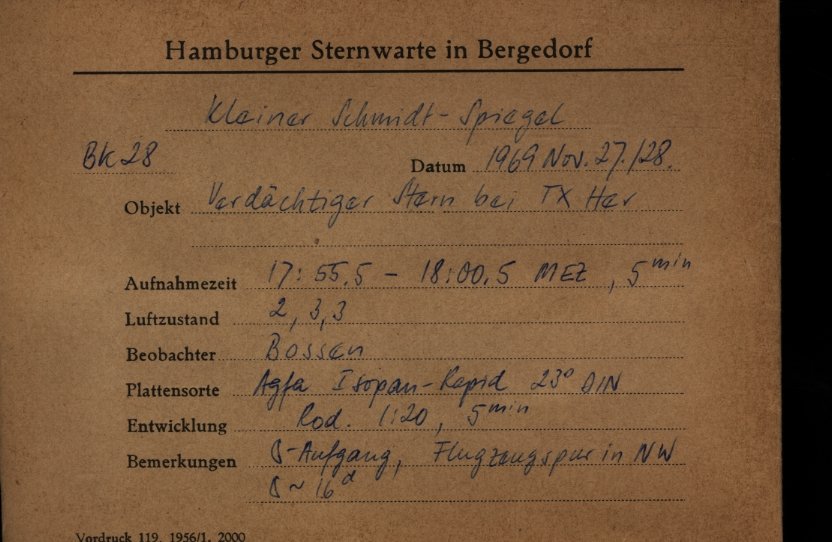 Hamburger Sternwarte in Bergedorf
Kleiner Schmidt-Spiegel
BK 28 Datum 1969 Nov. 27./28.
Objekt Verdächtiger Stern bei TX Her
Aufnahmezeit 17:55,5 - 18:00,5 MEZ, 5 min
Luftzustand 2, 3, 3
Beobachter Bossen
Plattensorte Agfa Isopan-Rapid 23° DIN
Entwicklung Rod. 1:20, 5 min
Bemerkungen -Aufgang, Flugzeugspur in NW
~ 16 d
Vordruck 119. 1956/1. 2000